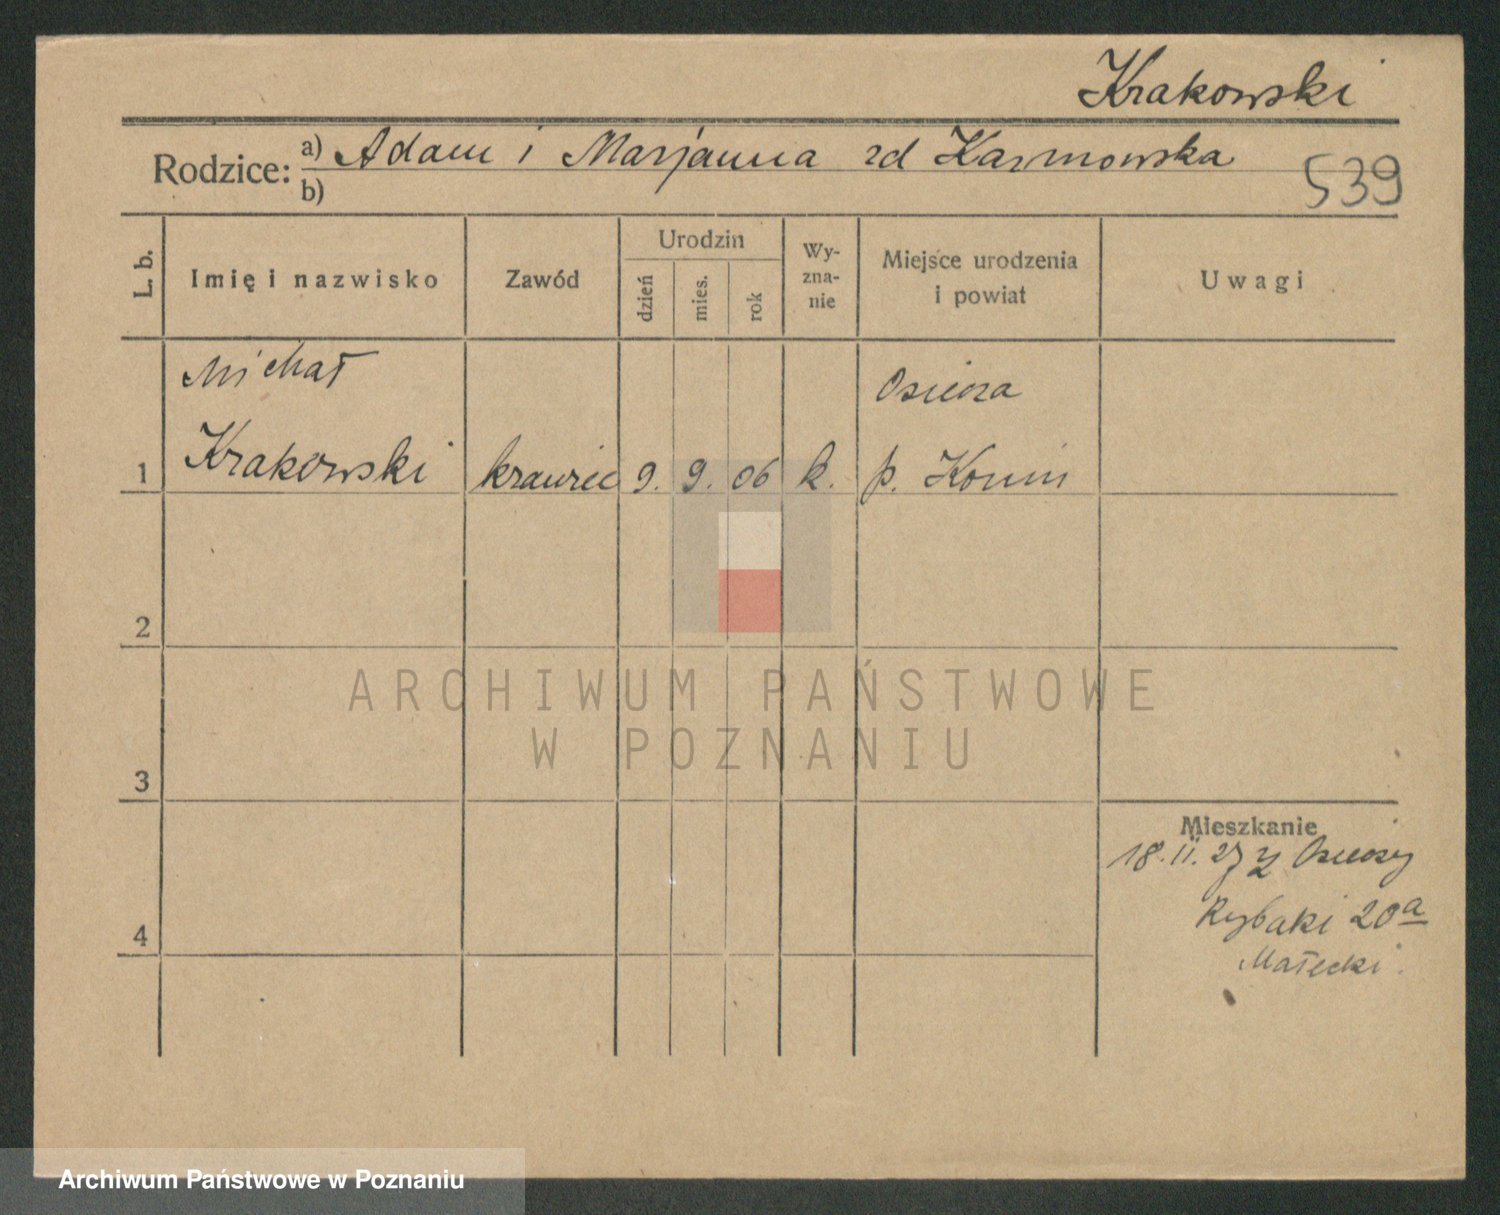 Krakowski
Rodzice: a) Adam i Marjanna zd Karmowska
b)
539
L. b.
Imię i nazwisko
Zawód
Urodzin
dzień
mies.
rok
Wy-
zna-
nie
Miejsce urodzenia
i powiat
Uwagi
Michał
Osiecza
1 Krakowski krawiec 9. 9. 06 k. p. Konin
2
ARCHIWUM PAŃSTWOWE
W POZNANIU
3
Mieszkanie
18.II.27 z Osieczy
Rybaki 20a
4
Małecki.
Archiwum Państwowe w Poznaniu